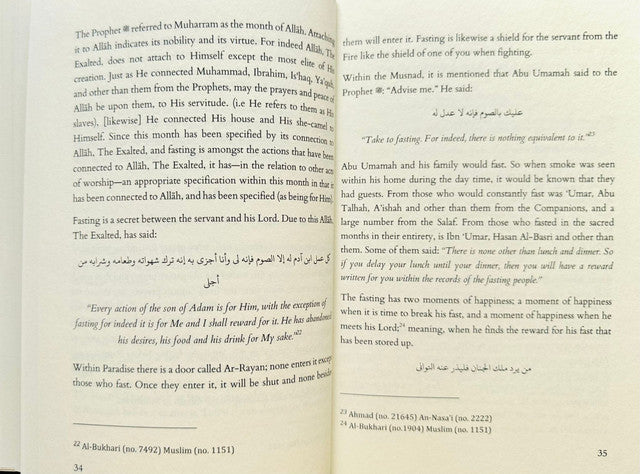 The Prophet ﷺ referred to Muharram as the month of Allāh. Attaching
it to Allāh indicates its nobility and its virtue. For indeed Allāh, The
Exalted, does not attach to Himself except the most elite of His
creation. Just as He connected Muhammad, Ibrahim, Is'haq, Ya'qub,
and other than them from the Prophets, may the prayers and peace of
Allāh be upon them, to His servitude. (i.e He refers to them as His
slaves), [likewise] He connected His house and His she-camel to
Himself. Since this month has been specified by its connection to
Allāh, The Exalted, and fasting is amongst the actions that have been
connected to Allāh, The Exalted, it has—in the relation to other acts
of worship—an appropriate specification within this month in that it
has been connected to Allāh, and has been specified (as being for Him).
Fasting is a secret between the servant and his Lord. Due to this Allāh,
The Exalted, has said:
كل عمل ابن آدم له إلا الصوم فإنه لى وأنا أجزى به إنه ترك شهواته وطعامه وشرابه من
أجلى
"Every action of the son of Adam is for Him, with the exception of
fasting for indeed it is for Me and I shall reward for it. He has abandoned
his desires, his food and his drink for My sake."22
Within Paradise there is a door called Ar-Rayan; none enters it except
those who fast. Once they enter it, it will be shut and none beside
22 Al-Bukhari (no. 7492) Muslim (no. 1151)
34
them will enter it. Fasting is likewise a shield for the servant from the
Fire like the shield of one of you when fighting.
Within the Musnad, it is mentioned that Abu Umamah said to the
Prophet ﷺ: "Advise me." He said:
عليك بالصوم فإنه لا عدل له
"Take to fasting. For indeed, there is nothing equivalent to it."23
Abu Umamah and his family would fast. So when smoke was seen
within his home during the day time, it would be known that they
had guests. From those who would constantly fast was 'Umar, Abu
Talhah, A'ishah and other than them from the Companions, and a
large number from the Salaf. From those who fasted in the sacred
months in their entirety, is Ibn 'Umar, Hasan Al-Basri and other than
them. Some of them said: "There is none other than lunch and dinner. So
if you delay your lunch until your dinner, then you will have a reward
written for you within the records of the fasting people."
The fasting has two moments of happiness; a moment of happiness
when it is time to break his fast, and a moment of happiness when he
meets his Lord;24 meaning, when he finds the reward for his fast that
has been stored up.
من يرد ملك الجنان فليذر عنه التوانى
23 Ahmad (no. 21645) An-Nasa'i (no. 2222)
24 Al-Bukhari (no.1904) Muslim (no. 1151)
35